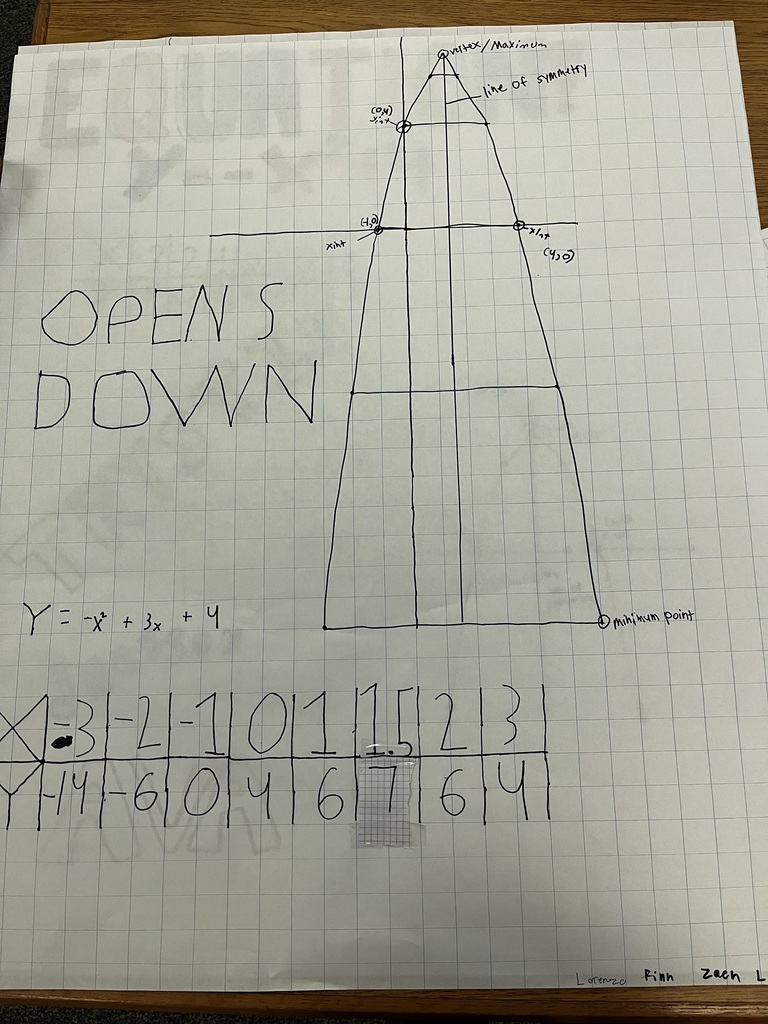 vertex/Maximum
line of symmetry
(0,4)
yint
(-1,0)
xint
xint
(4,0)
OPENS
DOWN
Y = -x² + 3x + 4
minimum point
X -3 -2 -1 0 1 1.5 2 3
Y -14 -6 0 4 6 7 6 4
Lorenzo Finn Zach L